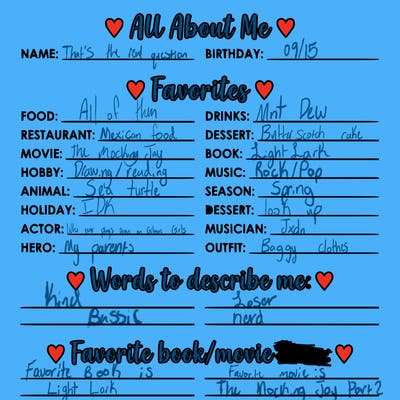 All About Me
NAME: That's the real question BIRTHDAY: 09/15
Favorites
FOOD: All of them DRINKS: Mnt Dew
RESTAURANT: Mexican food DESSERT: Butter Scotch cake
MOVIE: The Mocking Jay BOOK: Light Lark
HOBBY: Drawing/reading MUSIC: Rock/Pop
ANIMAL: Sea turtle SEASON: Spring
HOLIDAY: IDK DESSERT: look up
ACTOR: Girls MUSICIAN: Jxdn
HERO: My parents OUTFIT: Baggy clothes
Words to describe me:
Kind Loser
Bassic nerd
Favorite book/movie
Favorite Book is Favorite movie is
Light Lark The Mocking Jay Part 2